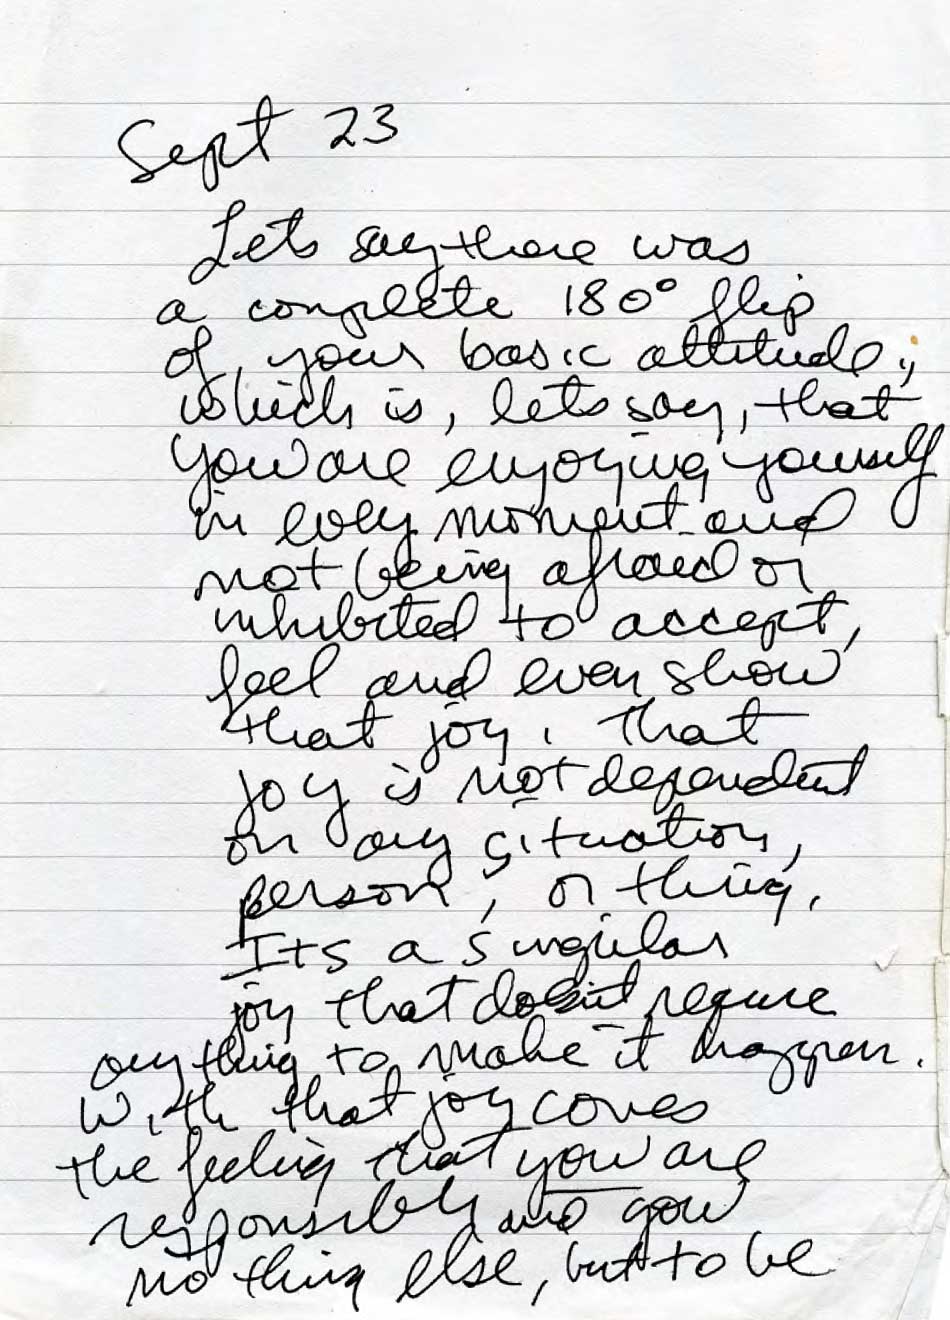 Sept 23
Lets say there was
a complete 180° flip
of your basic attitude,
which is, lets say, that
you are enjoying yourself
in every moment and
not being afraid or
inhibited to accept,
feel and even show
that joy. That
joy is not dependent
on any situation,
person, or thing.
Its a singular
joy that doesnt require
anything to make it happen.
With that joy comes
the feeling that you are
responsibly and you
nothing else, but to be